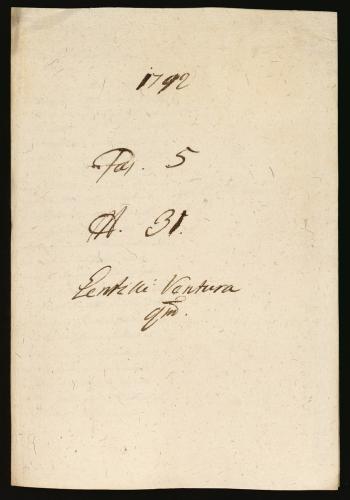 1792
Fas. 5
N. 31.
Gentilli Ventura
qm.